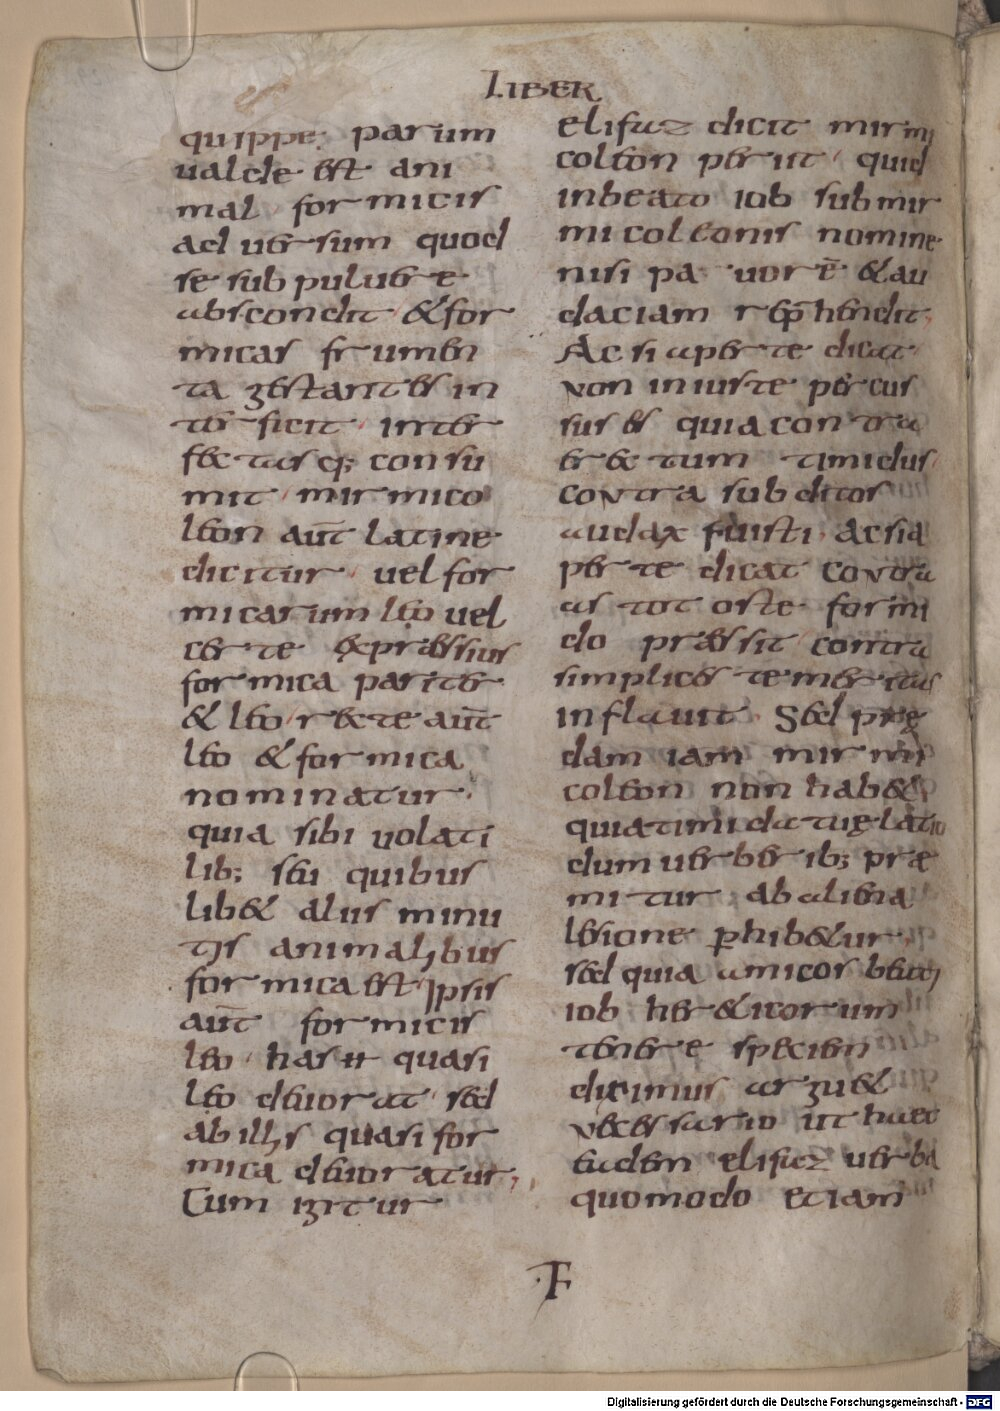 LIBER
quippe parum
ualde est ani
mal formicis
aduersum quod
se sub puluere
abscondit & for
micas frumen
ta gestantes in
terficit inter
fectasq; consu
mit mirmico
leon aut̄ latine
dicitur uel for
micarum leo uel
certe expraessius
formica pariter
& leo recte aut̄
leo & formica
nominatur.
quia sibi uolati
lib; seu quibus
lib& aliis minu
tis animalibus
formica est Ipsis
aut̄ formicis
leo has quasi
leo deuorat sed
ab illis quasi for
mica deuoratur;
Cum igitur
elifaz dicit mirmi
coleon periit quid
inbeato iob submir
micoleonis nomine
nisi pauorē & au
daciam rep̄hendit,
Ac si aperte dicat
Non iniuste percus
sus es quia contra
erectum timidus
contra subditos
audax fuisti Ac si a
perte dicat contra
astot oste formi
do praessit contra
simplices te meritas
inflauit. Sed prę
dam iam mirmi
coleon non hab&
quia timida tuę latio
dum uerberib; præ
mitur ab aliena
lesione p̱hib&ur
sed quia amicos beati
iob her&icorum
tenere speciem
diximus arzu&
necessario ut haec
eadem elifaz uerba
quomodo etiam
F
Digitalisierung gefördert durch die Deutsche Forschungsgemeinschaft - DFG